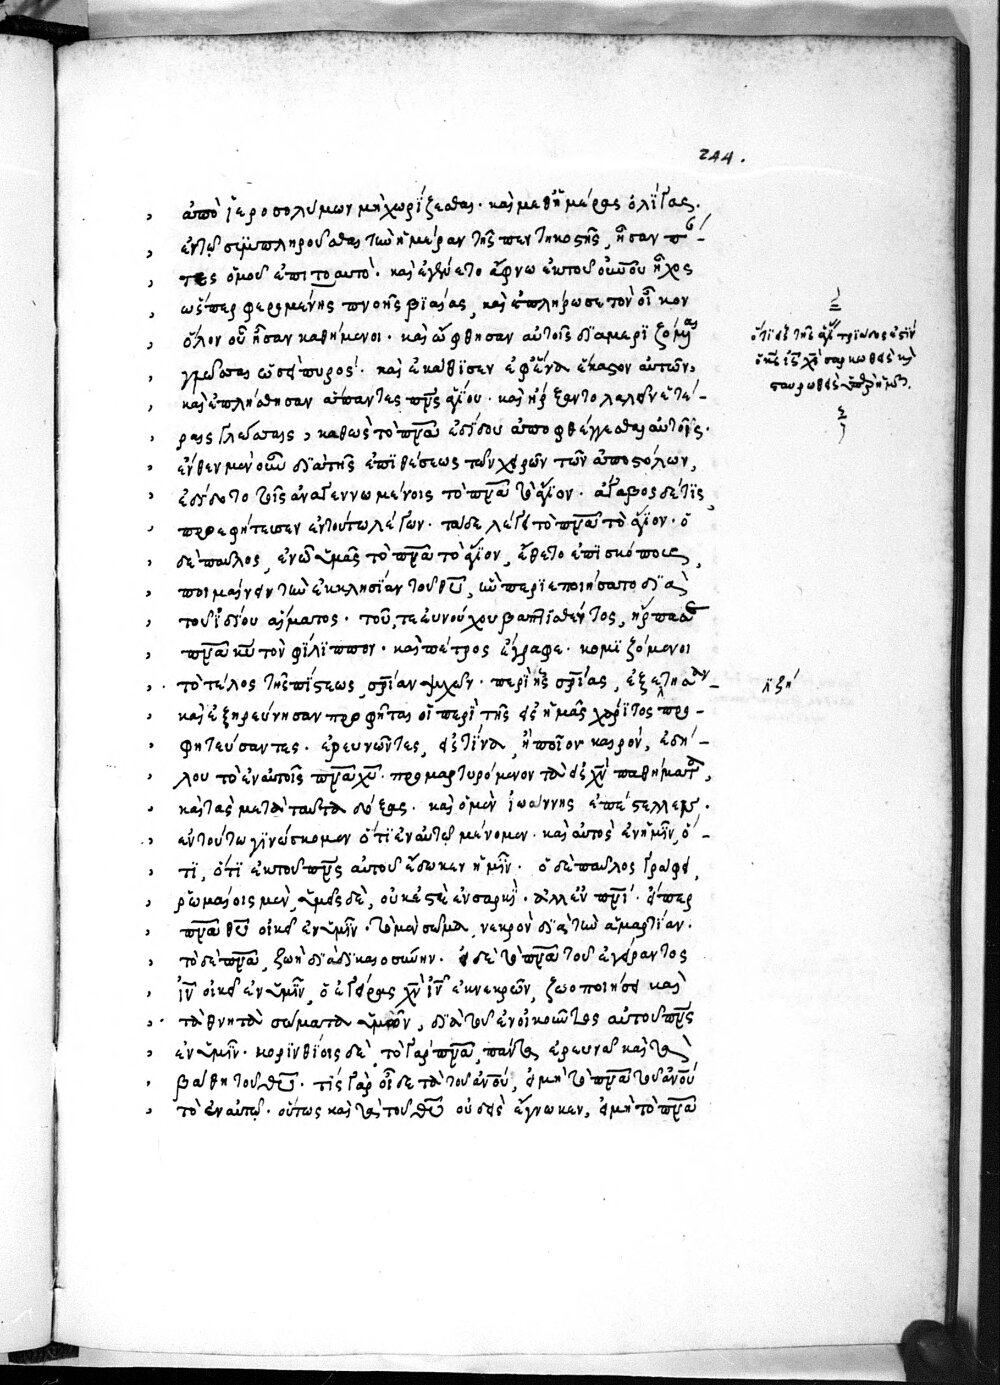 244.
ἀπὸ ἱεροσολύμων μὴ χωρίζεσθαι· καὶ μεθ' ἡμέρας ὀλίγας.
ἐν τῷ συμπληροῦσθαι τὴν ἡμέραν τῆς πεντηκοστῆς, ἦσαν πάν-
τες ὁμοῦ ἐπιτοαυτὸ· καὶ ἐγένετο ἄφνω ἐκ τοῦ οὐνοῦ ἦχος
ὥσπερ φερομένης πνοῆς βϊαίας, καὶ ἐπλήρωσε τὸν οἶκον
ὅλον οὗ ἦσαν καθήμενοι· καὶ ὤφθησαν αὐτοῖς διαμερϊζόμεναι
γλῶσσαι ὡσεὶ πυρός· καὶ ἐκάθϊσεν ἐφ' ἕνα ἕκαστον αὐτῶν,
καὶ ἐπλήσθησαν ἅπαντες πνς ἁγίου· καὶ ἤρξαντο λαλεῖν ἑτέ-
ραις γλώσσαις, καθὼς τὸ πνα ἐδίδου ἀποφθέγγεσθαι αὐτοῖς.
ἔνθεν μὲν οὖν διὰ τῆς ἐπϊθέσεως τῶν χειρῶν τῶν ἀποστόλων,
ἐδίδοτο τοῖς ἀναγεννωμένοις τὸ πνα τὸ ἅγϊον· ἄγαβος δέ τϊς
προεφήτευσεν ἐν τούτω λέγων· τάδε λέγει τὸ πνα τὸ ἅγϊον· ὁ
δὲ παῦλος, ἐν ᾧ ὑμᾶς τὸ πνα τὸ ἅγϊον, ἔθετο ἐπϊσκόπους,
ποιμαίνειν τὴν ἐκκλησίαν τοῦ θυ, ἣν περϊεποιήσατο δϊὰ
τοῦ ἰδίου αἵματος· τοῦ, τε εὐνούχου βαπτϊσθέντος, ἥρπασε
πνα κυ τὸν φϊλϊππον· καὶ πέτρος ἔγραφε· κομϊζόμενοι
τὸ τέλος τῆς πίστεως, σρίαν ψυχῶν· περὶ ἧς σρίας, ἐξεζήτησαν
καὶ ἐξηρεύνησαν προφῆται οἱ περὶ τῆς εἰς ἡμᾶς χάρϊτος προ-
φητεύσαντες· ἐρευνῶντες, εἰς τίνα, ἢ ποῖον καιρὸν, ἐδή-
λου τὸ ἐν αὐτοῖς πνα χυ· προμαρτυρόμενον τὰ εἰς χν παθήματα,
καὶ τὰς μετὰ ταῦτα δόξας· καὶ ὁ μὲν ἰωάννης ἐπέστελλεν·
ἐν τούτω γϊνώσκομεν ὅτϊ ἐν αὐτῷ μένομεν· καὶ αὐτὸς ἐν ἡμῖν, ὅ-
τϊ, ὅτϊ ἐκ τοῦ πνς αὐτοῦ ἔδωκεν ἡμῖν· ὁ δὲ παῦλος γράφει,
ῥωμαίοις μὲν, ὑμεῖς δὲ, οὐκ ἐστὲ ἐν σαρκϊ· ἀλλ' ἐν πνϊ· εἴπερ
πνα θυ οἰκεῖ ἐν ὑμῖν· τὸ μὲν σῶμα, νεκρὸν δϊὰ τὴν ἁμαρτϊαν·
τὸ δὲ πνα, ζωὴ διὰ δϊκαιοσύνην· εἰ δὲ τὸ πνα τοῦ ἐγείραντος
ιν οἰκεῖ ἐν ὑμῖν, ὁ ἐγείρας χν ιν ἐκ νεκρῶν, ζωοποιήσει καὶ
τὰ θνητὰ σώματα ὑμῶν, διὰ τοῦ ἐνοικοῦντος αὐτοῦ πνς
ἐν ὑμῖν· κορϊνθίοις δὲ, τὸ γὰρ πνα, πάντα ἐρευνᾶ καὶ τὰ
βάθη τοῦ θυ· τίς γὰρ οἶδε τὰ τοῦ ἀνου, εἰ μὴ τὸ πνα τοῦ ἀνου
τὸ ἐν αὐτῷ· οὕτως καὶ τὰ τοῦ θυ οὐδεὶς ἔγνωκεν, εἰ μὴ τὸ πνα
ὅτϊ εἷς τῆς ἁγί τρϊάδος ἐστϊν
ὁ κς ις χς σαρκωθεὶς καὶ
σταυρωθεὶς ὑπὲρ ἡμῶν.